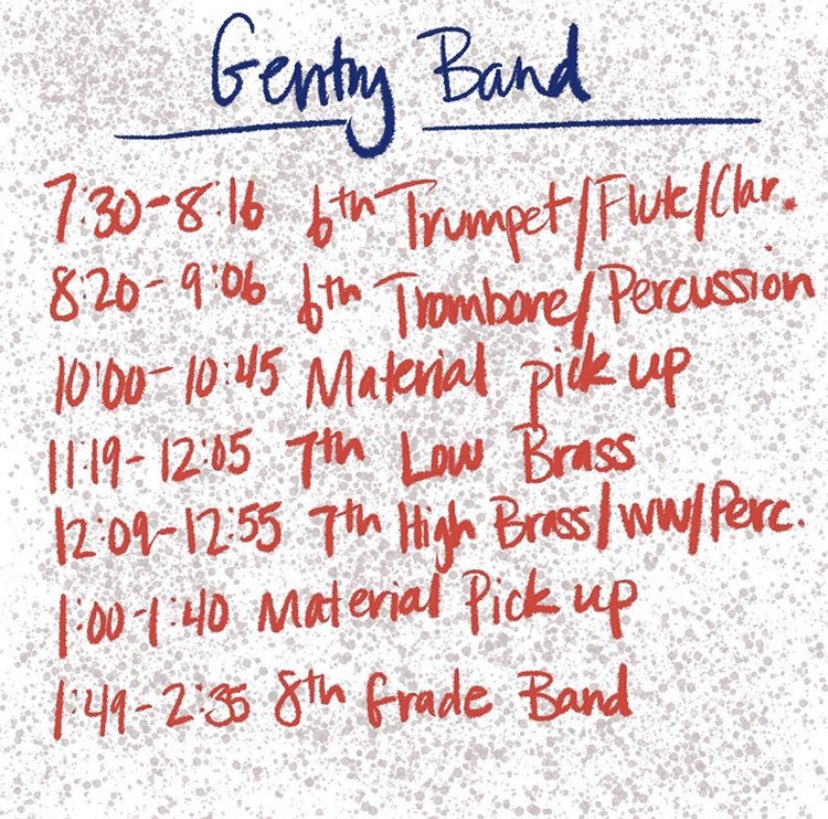 Gentry Band
7:30-8:16 6th Trumpet/Flute/Clar.
8:20-9:06 6th Trombone/Percussion
10:00-10:45 Material pick up
11:19-12:05 7th Low Brass
12:09-12:55 7th High Brass/ww/Perc.
1:00-1:40 Material Pick up
1:49-2:35 8th Grade Band